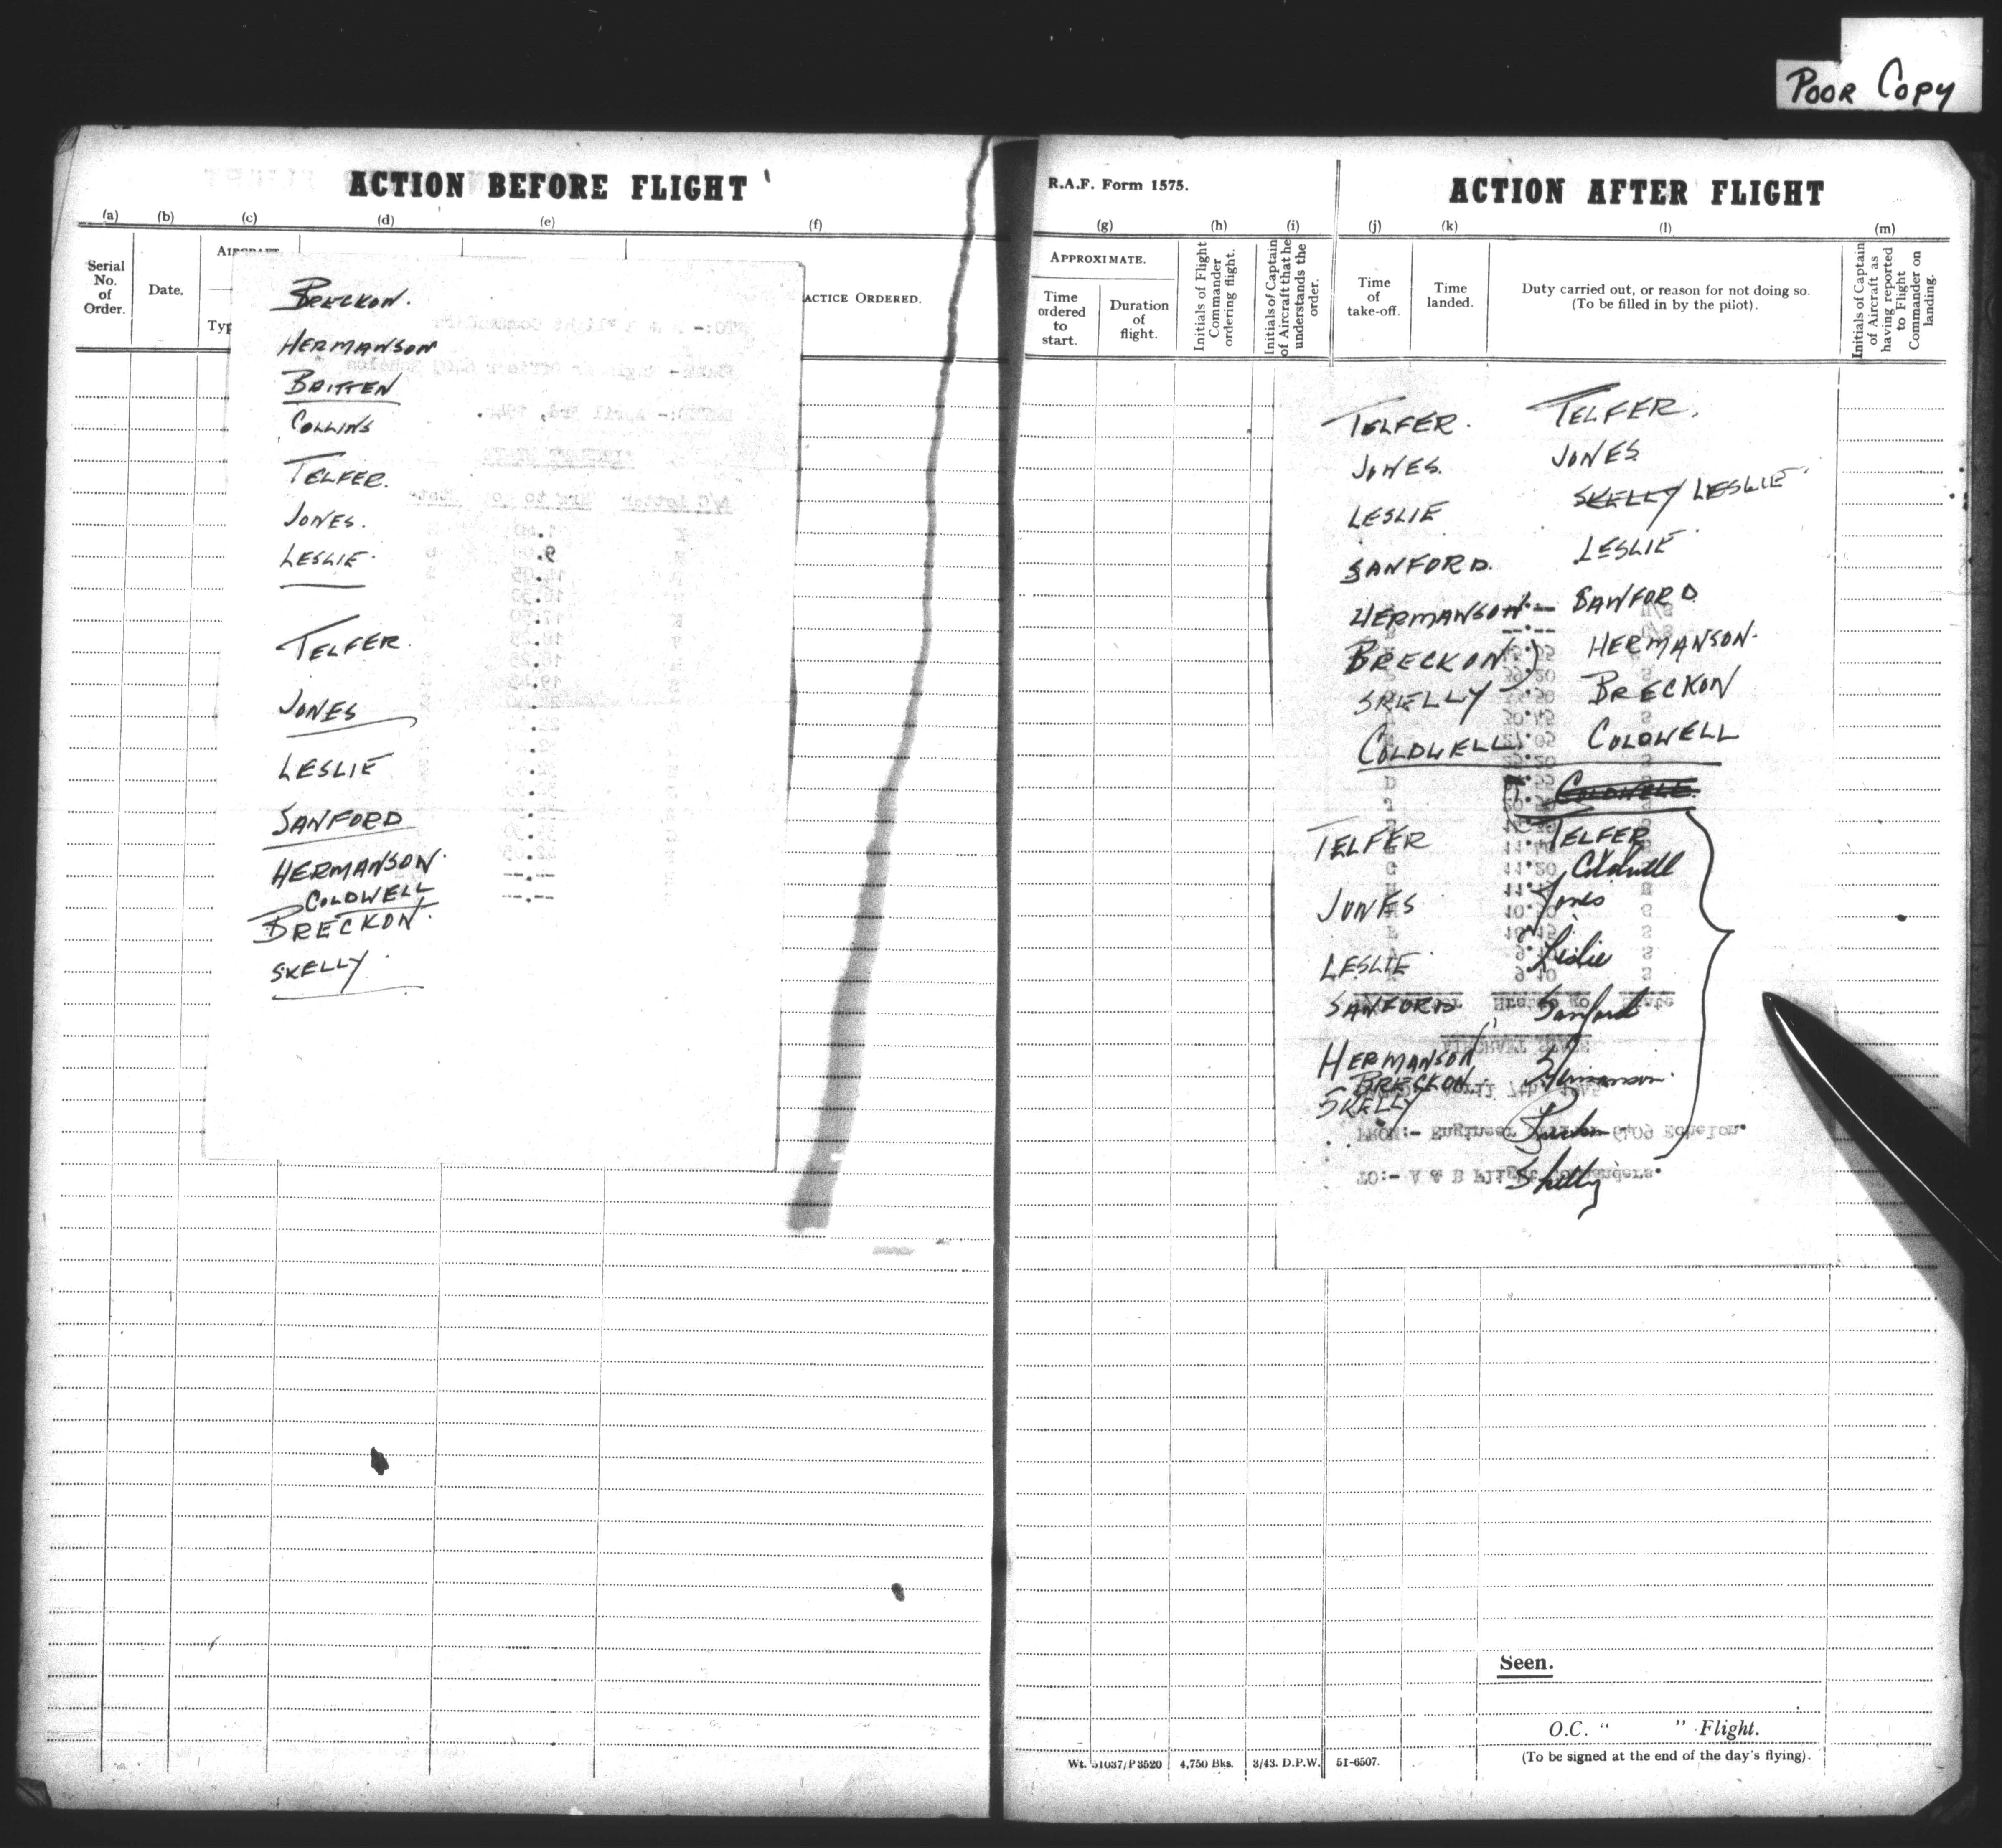 POOR COPY
ACTION BEFORE FLIGHT
(a) (b) (c) (d) (e) (f)
Serial No. of Order.
Date.
AIRCRAFT
Typ
ACTICE ORDERED.
BRECKON.
HERMANSON
BRITTEN
COLLINS
TELFER.
JONES.
LESLIE.
TELFER.
JONES
LESLIE
SANFORD
HERMANSON.
COLDWELL
BRECKON.
SKELLY.
R.A.F. Form 1575.
ACTION AFTER FLIGHT
(g) (h) (i) (j) (k) (l) (m)
APPROXIMATE.
Time ordered to start.
Duration of flight.
Initials of Flight Commander ordering flight.
Initials of Captain of Aircraft that he understands the order.
Time of take-off.
Time landed.
Duty carried out, or reason for not doing so.
(To be filled in by the pilot).
Initials of Captain of Aircraft as having reported to Flight Commander on landing.
TELFER. TELFER.
JONES. JONES
LESLIE SKELLY LESLIE
SANFORD. LESLIE
HERMANSON. SANFORD
BRECKON. HERMANSON.
SKELLY BRECKON
COLDWELL COLDWELL
COLDWELL
TELFER TELFER
Coldwell
JONES Jones
LESLIE Leslie
SANFORD Sanford
HERMANSON Hermanson.
BRECKON
SKELLY
Breckon
Skelly
Seen.
O.C. " " Flight.
(To be signed at the end of the day's flying).
Wt. 51037/P3520 4,750 Bks. 3/43. D.P.W. 51-6507.